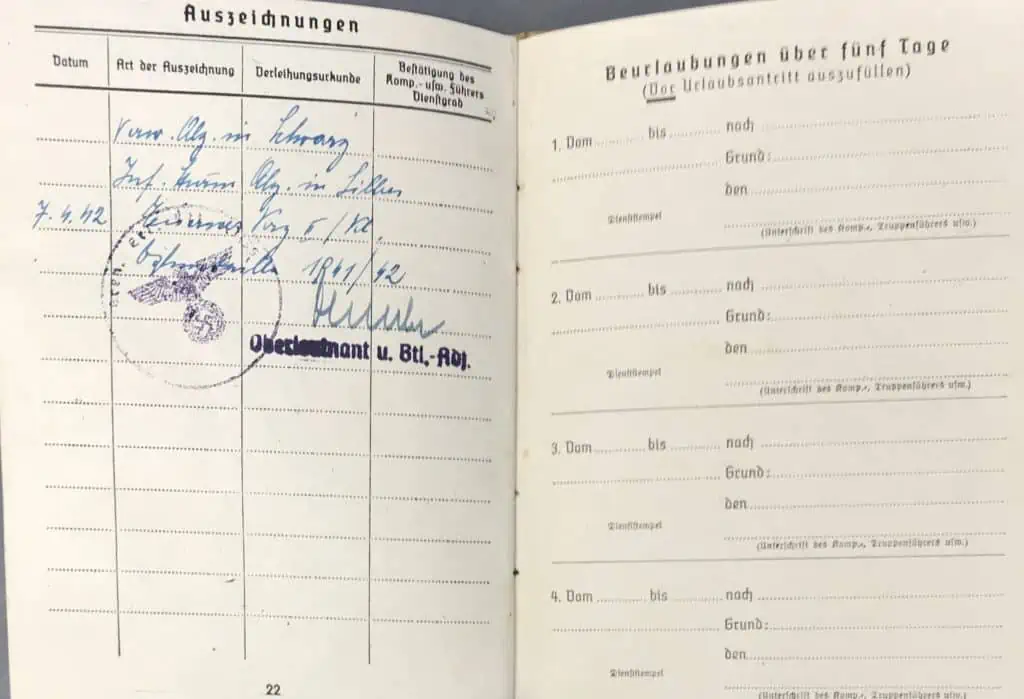 Auszeichnungen
Datum
Art der Auszeichnung
Verleihungsurkunde
Bestätigung des
Komp.- usw. Führers
Dienstgrad
Verw. Abz. in Schwarz
Inf. Sturm Abz. in Silber
7.4.42 Eisernes II/Kl.
1941/42
Oberleutnant u. Btl.-Adj.
22
Beurlaubungen über fünf Tage
(Vor Urlaubsantritt auszufüllen)
1. Vom bis nach
Grund:
den
Dienststempel
(Unterschrift des Komp.-, Truppenführers usw.)
2. Vom bis nach
Grund:
den
Dienststempel
(Unterschrift des Komp.-, Truppenführers usw.)
3. Vom bis nach
Grund:
den
Dienststempel
(Unterschrift des Komp.-, Truppenführers usw.)
4. Vom bis nach
Grund:
den
Dienststempel
(Unterschrift des Komp.-, Truppenführers usw.)